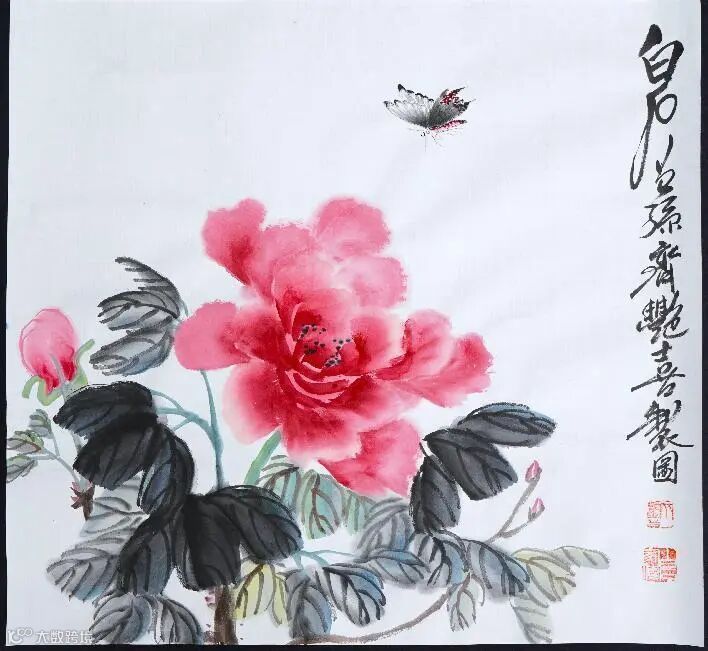 白石曾孫齊艷喜製圖
大数跨境